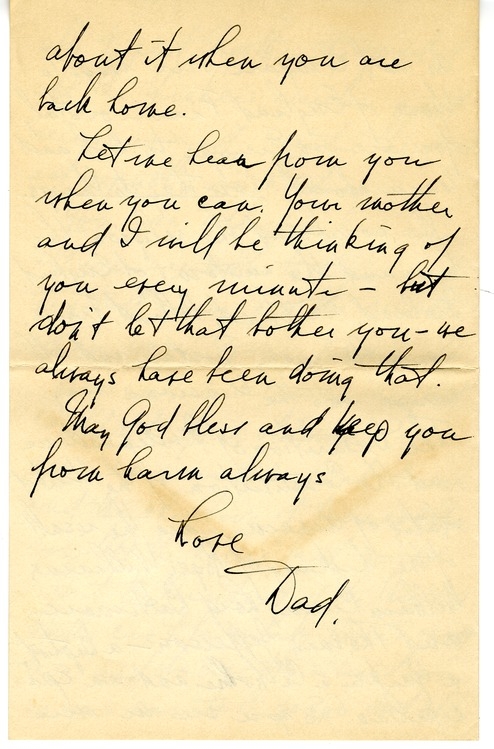 about it when you are
back home.
Let me hear from you
when you can. Your mother
and I will be thinking of
you every minute - but
don't let that bother you - we
always have been doing that.
May God bless and keep you
from harm always
Love
Dad.